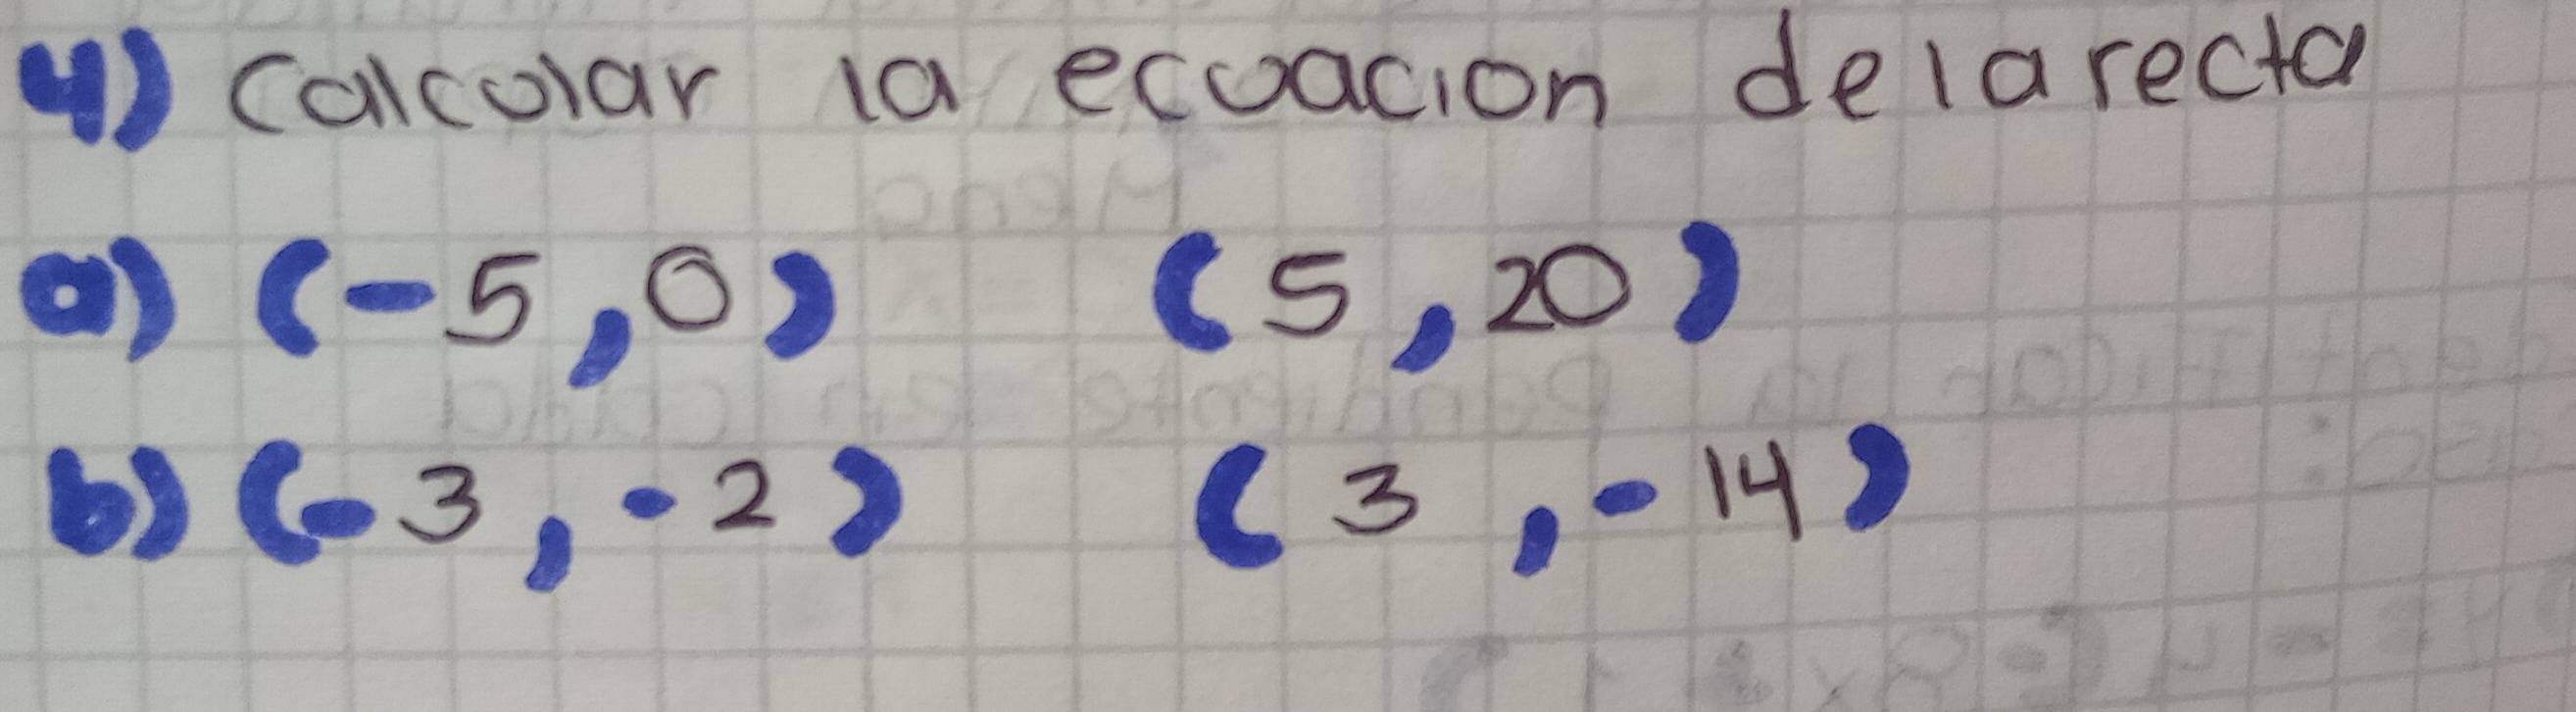 4) Calcular la ecuacion de la recta
a) (-5,0) (5,20)
b) (-3,-2) (3,-14)